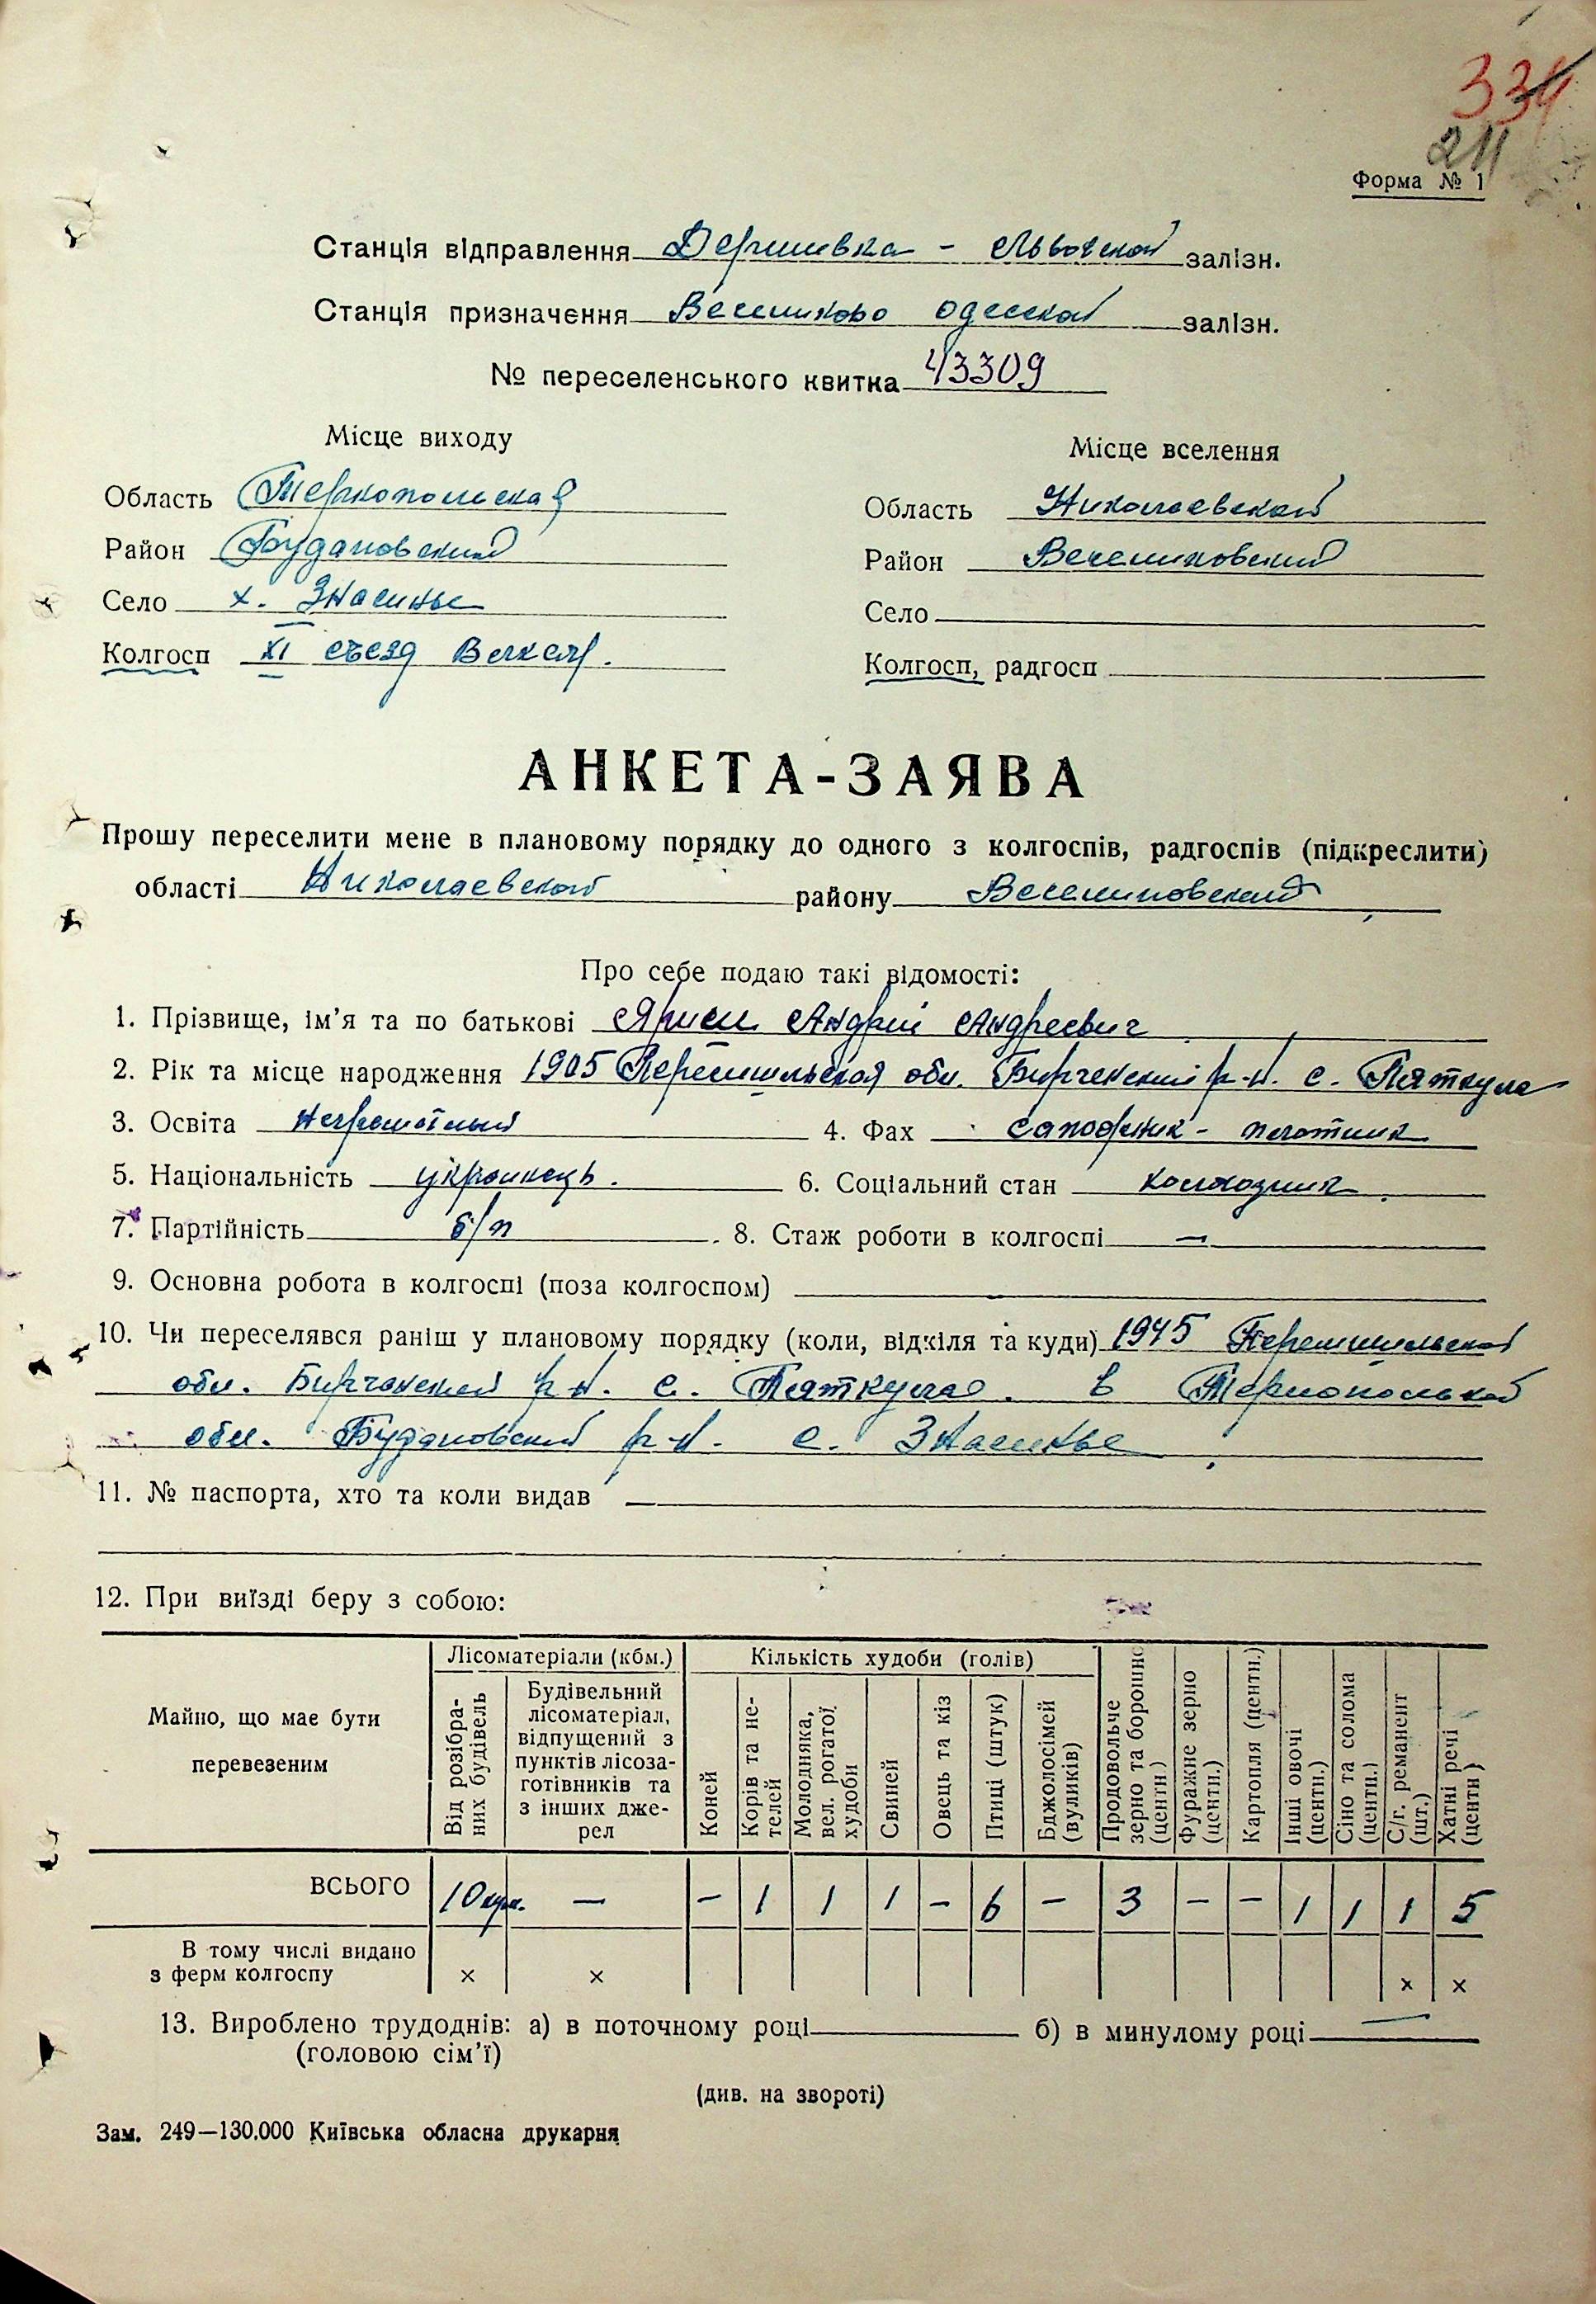 334
211
Форма № 1
Станція відправлення Дершевка - Львовской залізн.
Станція призначення Веселиново одесской залізн.
№ переселенського квитка 43309
Місце виходу
Місце вселення
Область Тернопольская
Область Николаевской
Район Будановский
Район Веселиновский
Село х. Знасинье
Село
Колгосп XI съезд
Колгосп, радгосп
АНКЕТА-ЗАЯВА
Прошу переселити мене в плановому порядку до одного з колгоспів, радгоспів (підкреслити)
області Николаевской району Веселиновский
Про себе подаю такі відомості:
1. Прізвище, ім’я та по батькові Андрей Андреевич
2. Рік та місце народження 1905 Перемишльская обл. Бирченский р-н. с. Пяткула
3. Освіта неграмотный 4. Фах сапожник - плотник
5. Національність українець. 6. Соціальний стан колхозник
7. Партійність б/п 8. Стаж роботи в колгоспі —
9. Основна робота в колгоспі (поза колгоспом)
10. Чи переселявся раніш у плановому порядку (коли, відкіля та куди) 1945 Перемишльской
обл. Бирчанский р-н. с. Пяткулас. в Тернопольской
обл. Будановский р-н. с. Знасинье
11. № паспорта, хто та коли видав
12. При виїзді беру з собою:
Майно, що має бути перевезеним
Лісоматеріали (кбм.)
Кількість худоби (голів)
Від розібраних будівель
Будівельний лісоматеріал, відпущений з пунктів лісозаготівників та з інших джерел
Коней
Корів та нетелей
Молодняка, вел. рогатої худоби
Свиней
Овець та кіз
Птиці (штук)
Бджолосімей (вуликів)
Продовольче зерно та борошно (центн)
Фуражне зерно (центн.)
Картопля (центн.)
Інші овочі (центн.)
Сіно та солома (центн.)
С/г. реманент (шт.)
Хатні речі (центн)
ВСЬОГО 10 — – 1 1 1 – 6 – 3 – – 1 1 1 5
В тому числі видано
з ферм колгоспу × × × ×
13. Вироблено трудоднів: а) в поточному році б) в минулому році —
(головою сім’ї)
(див. на звороті)
Зам. 249—130.000 Київська обласна друкарня